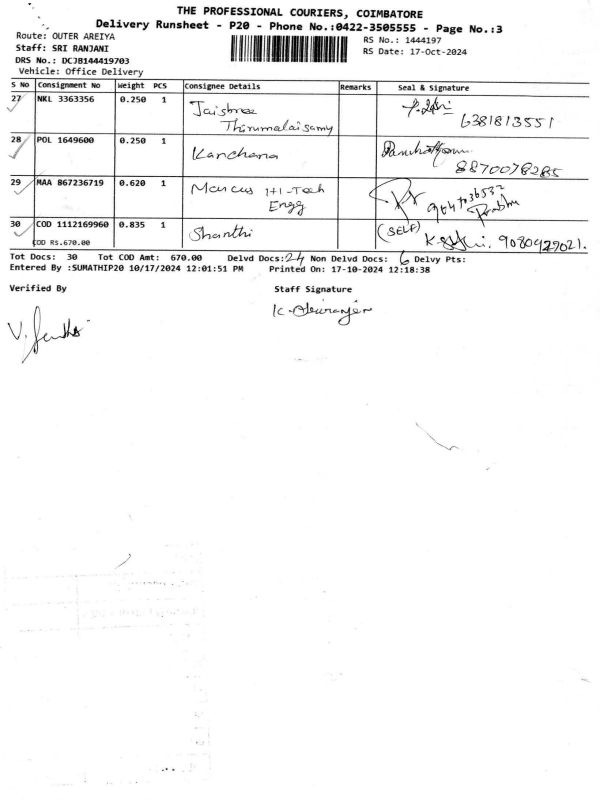 THE PROFESSIONAL COURIERS, COIMBATORE
Delivery Runsheet - P20 - Phone No.:0422-3505555 - Page No.:3
Route: OUTER AREIYA
RS No.: 1444197
Staff: SRI RANJANI
RS Date: 17-Oct-2024
DRS No.: DCJB144419703
Vehicle: Office Delivery
S No Consignment No Weight PCS Consignee Details Remarks Seal & Signature
27 NKL 3363356 0.250 1 Jaishree
Thirumalaisamy
6381813551
28 POL 1649600 0.250 1 Kanchana
8870078285
29 MAA 867236719 0.620 1 Marcus Hi-Tech
Engg
Prabhu
30 COD 1112169960 0.835 1 Shanthi (SELF)
COD Rs.670.00
Tot Docs: 30 Tot COD Amt: 670.00 Delvd Docs: 24 Non Delvd Docs: 6 Delvy Pts:
Entered By :SUMATHIP20 10/17/2024 12:01:51 PM Printed On: 17-10-2024 12:18:38
Verified By Staff Signature